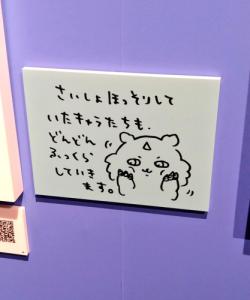 さいしょほっそりして
いたキャラたちも、
どんどん
ふっくら
していき
ます。